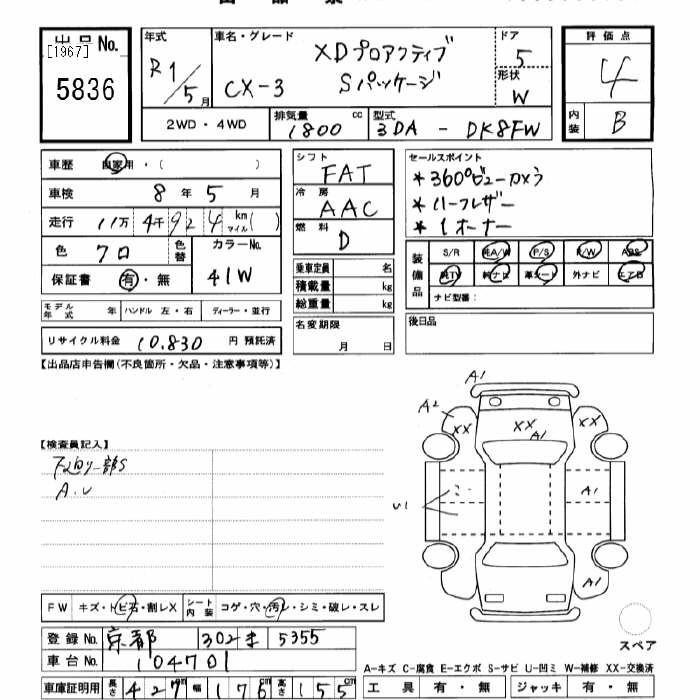 出品No.
[1967]
5836
年式
R1/5月
車名・グレード
XDプロアクティブ
CX-3 Sパッケージ
ドア
5
形状
W
評価点
4
内装
B
2WD・4WD
排気量 1800 cc
型式 3DA-DK8FW
車歴 自家用・( )
車検 8年5月
走行 11万4千924km マイル( )
色 クロ 色替
カラーNo. 41W
保証書 有・無
シフト FAT
冷房 AAC
燃料 D
乗車定員 名
積載量 kg
総重量 kg
名変期限
月 日
セールスポイント
*360°ビューカメラ
*ハーフレザー
*1オーナー
装備品
S/R 純A/W P/S P/W ABS
純TV 純ナビ 革シート 外ナビ エアB
ナビ型番:
後日品
モデル年式 年 ハンドル 左・右 ディーラー・並行
リサイクル料金 10.830 円 預託済
【出品店申告欄(不良箇所・欠品・注意事項等)】
【検査員記入】
下廻り一部S
A.U
A1
A2
XX
XX
XX
A1
U1
A1
A1
FW キズ・トビ石・割レX
シート内装 コゲ・穴・汚レ・シミ・破レ・スレ
スペア
登録No. 京都 302 ま 5355
車台No. 104701
A-キズ C-腐食 E-エクボ S-サビ U-凹ミ W-補修 XX-交換済
車庫証明用 長さ 427cm 幅 176cm 高さ 155cm
工具 有・無 ジャッキ 有・無